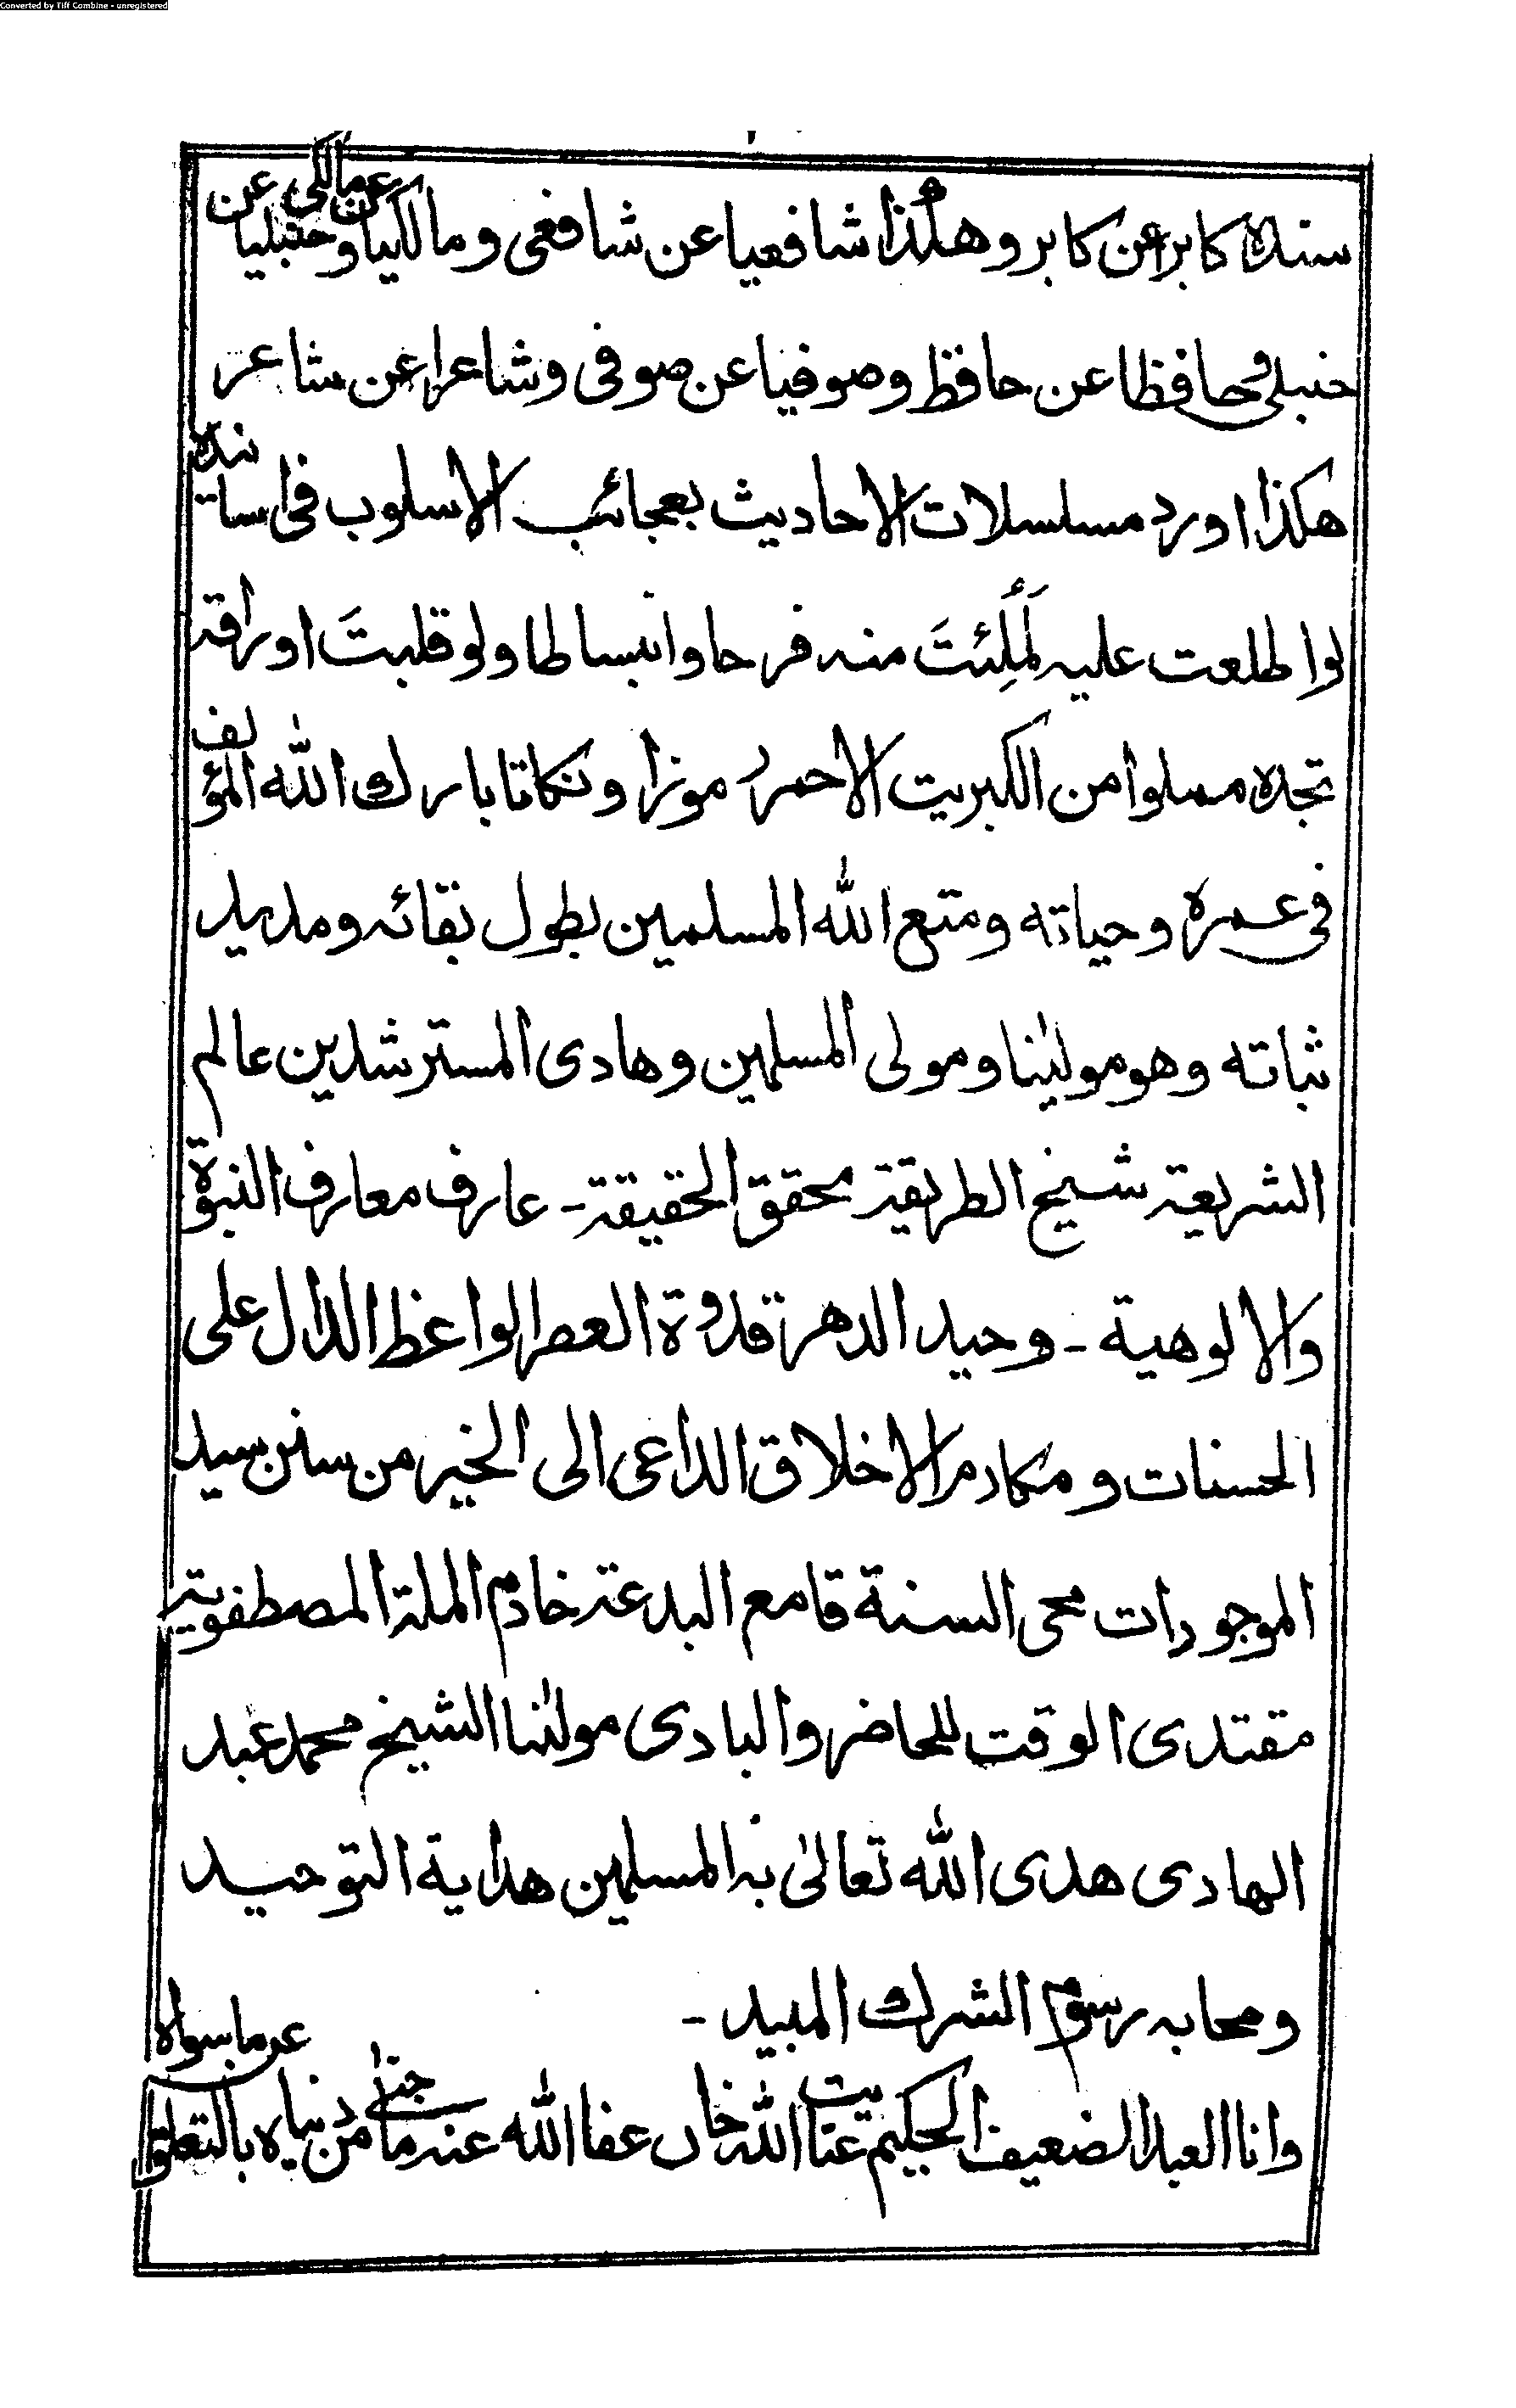 Converted by Tiff Combine - unregistered
سنده كابرا عن كابر وهكذا شافعيا عن شافعى ومالكيا عن مالكى وحنبليا عن
حنبلى وحافظا عن حافظ وصوفيا عن صوفى وشاعرا عن شاعر
هكذا اورد مسلسلات الاحاديث بعجائب الاسلوب فى اسانيده
لو اطلعت عليه لَمُلِئتَ منه فرحا وانبساطا ولو قلبتَ اوراقه
تجده مملوا من الكبريت الاحمر رموزا ونكاتا بارك الله المؤلف
فى عمره وحياته ومتع الله المسلمين بطول بقائه ومديد
ثباته وهو مولينا ومولى المسلمين وهادى المسترشدين عالم
الشريعة شيخ الطريقة محقق الحقيقة - عارف معارف النبوة
والالوهية - وحيد الدهر قدوة العصر الواعظ الدال على
الحسنات ومكارم الاخلاق الداعى الى الخير من سنن سيد
الموجودات محى السنة قامع البدعة خادم الملة المصطفوية
مقتدى الوقت للحاضر والبادى مولنا الشيخ محمد عبد
الهادى هدى الله تعالى به المسلمين هداية التوحيد
ومحا به رسوم الشرك المبيد -
وانا العبد الضعيف الحكيم عنايت الله خاں عفا الله عنه ما جنى من دنياه بالتعلق عن ما سواه